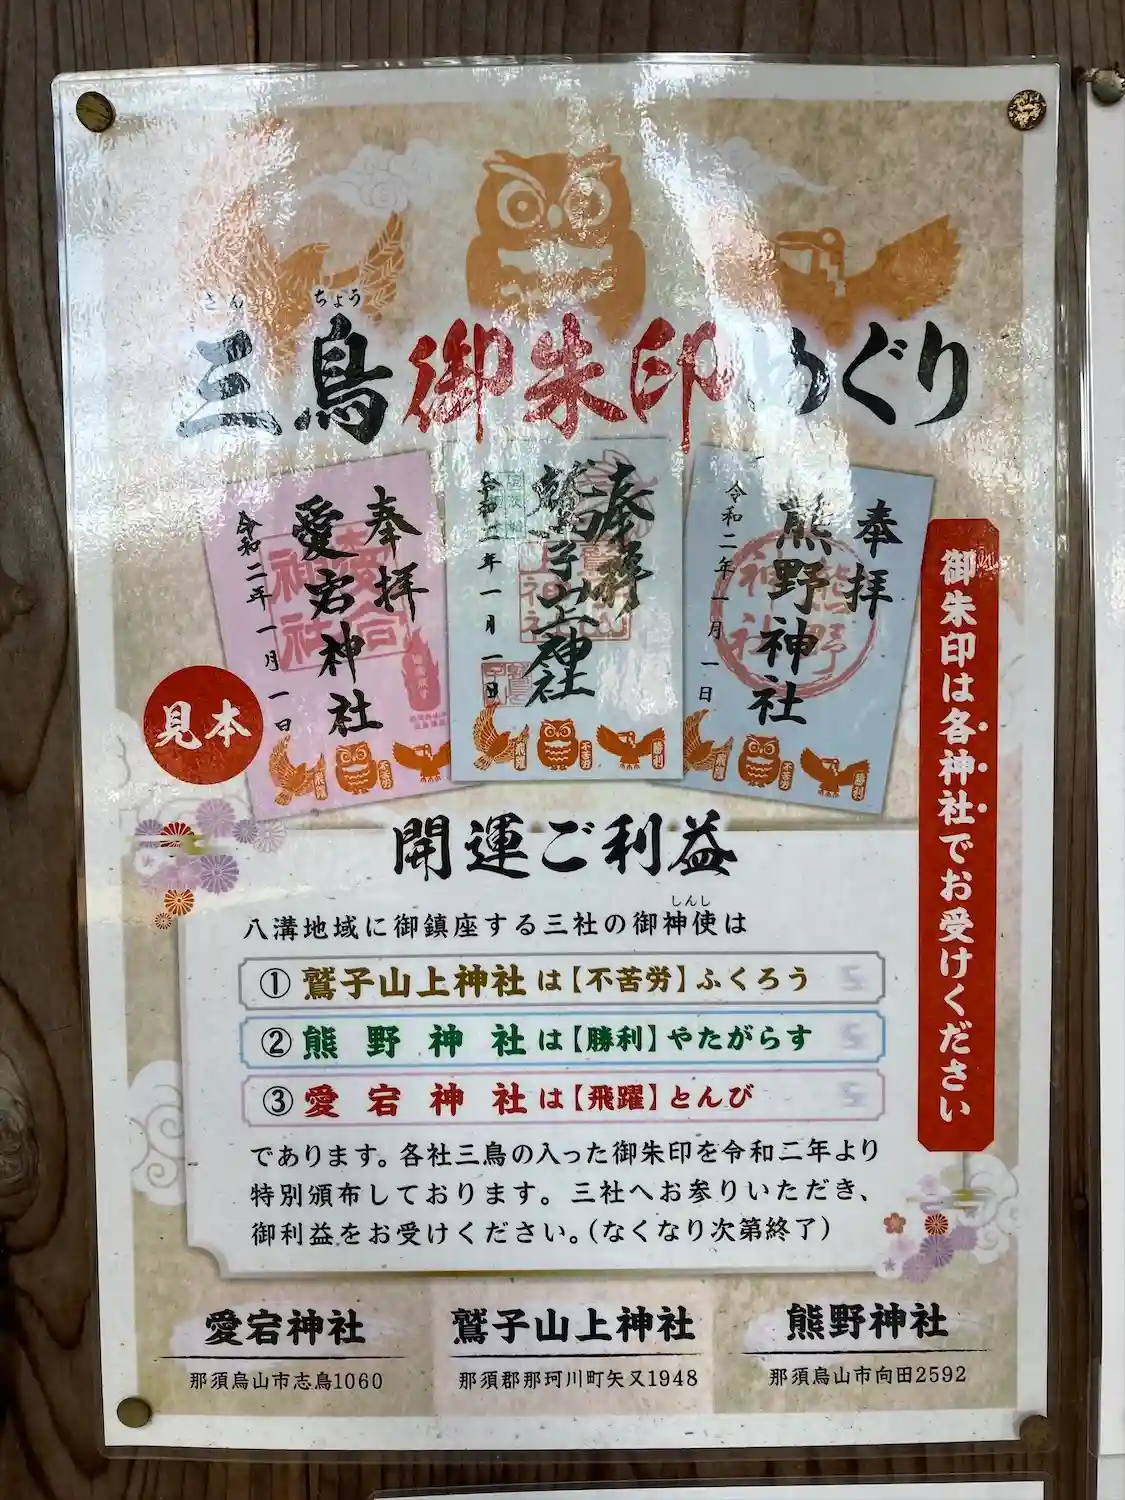 さん ちょう
三鳥御朱印めぐり
奉拝
愛宕神社
令和二年一月一日
奉拝
鷲子山上神社
令和二年一月一日
奉拝
熊野神社
令和二年一月一日
飛躍
不苦労
勝利
飛躍
不苦労
勝利
飛躍
不苦労
勝利
見本
御朱印は各神社でお受けください
開運ご利益
しんし
八溝地域に御鎮座する三社の御神使は
①鷲子山上神社は【不苦労】ふくろう
②熊野神社は【勝利】やたがらす
③愛宕神社は【飛躍】とんび
であります。各社三鳥の入った御朱印を令和二年より
特別頒布しております。三社へお参りいただき、
御利益をお受けください。（なくなり次第終了）
愛宕神社
那須烏山市志鳥1060
鷲子山上神社
那須郡那珂川町矢又1948
熊野神社
那須烏山市向田2592